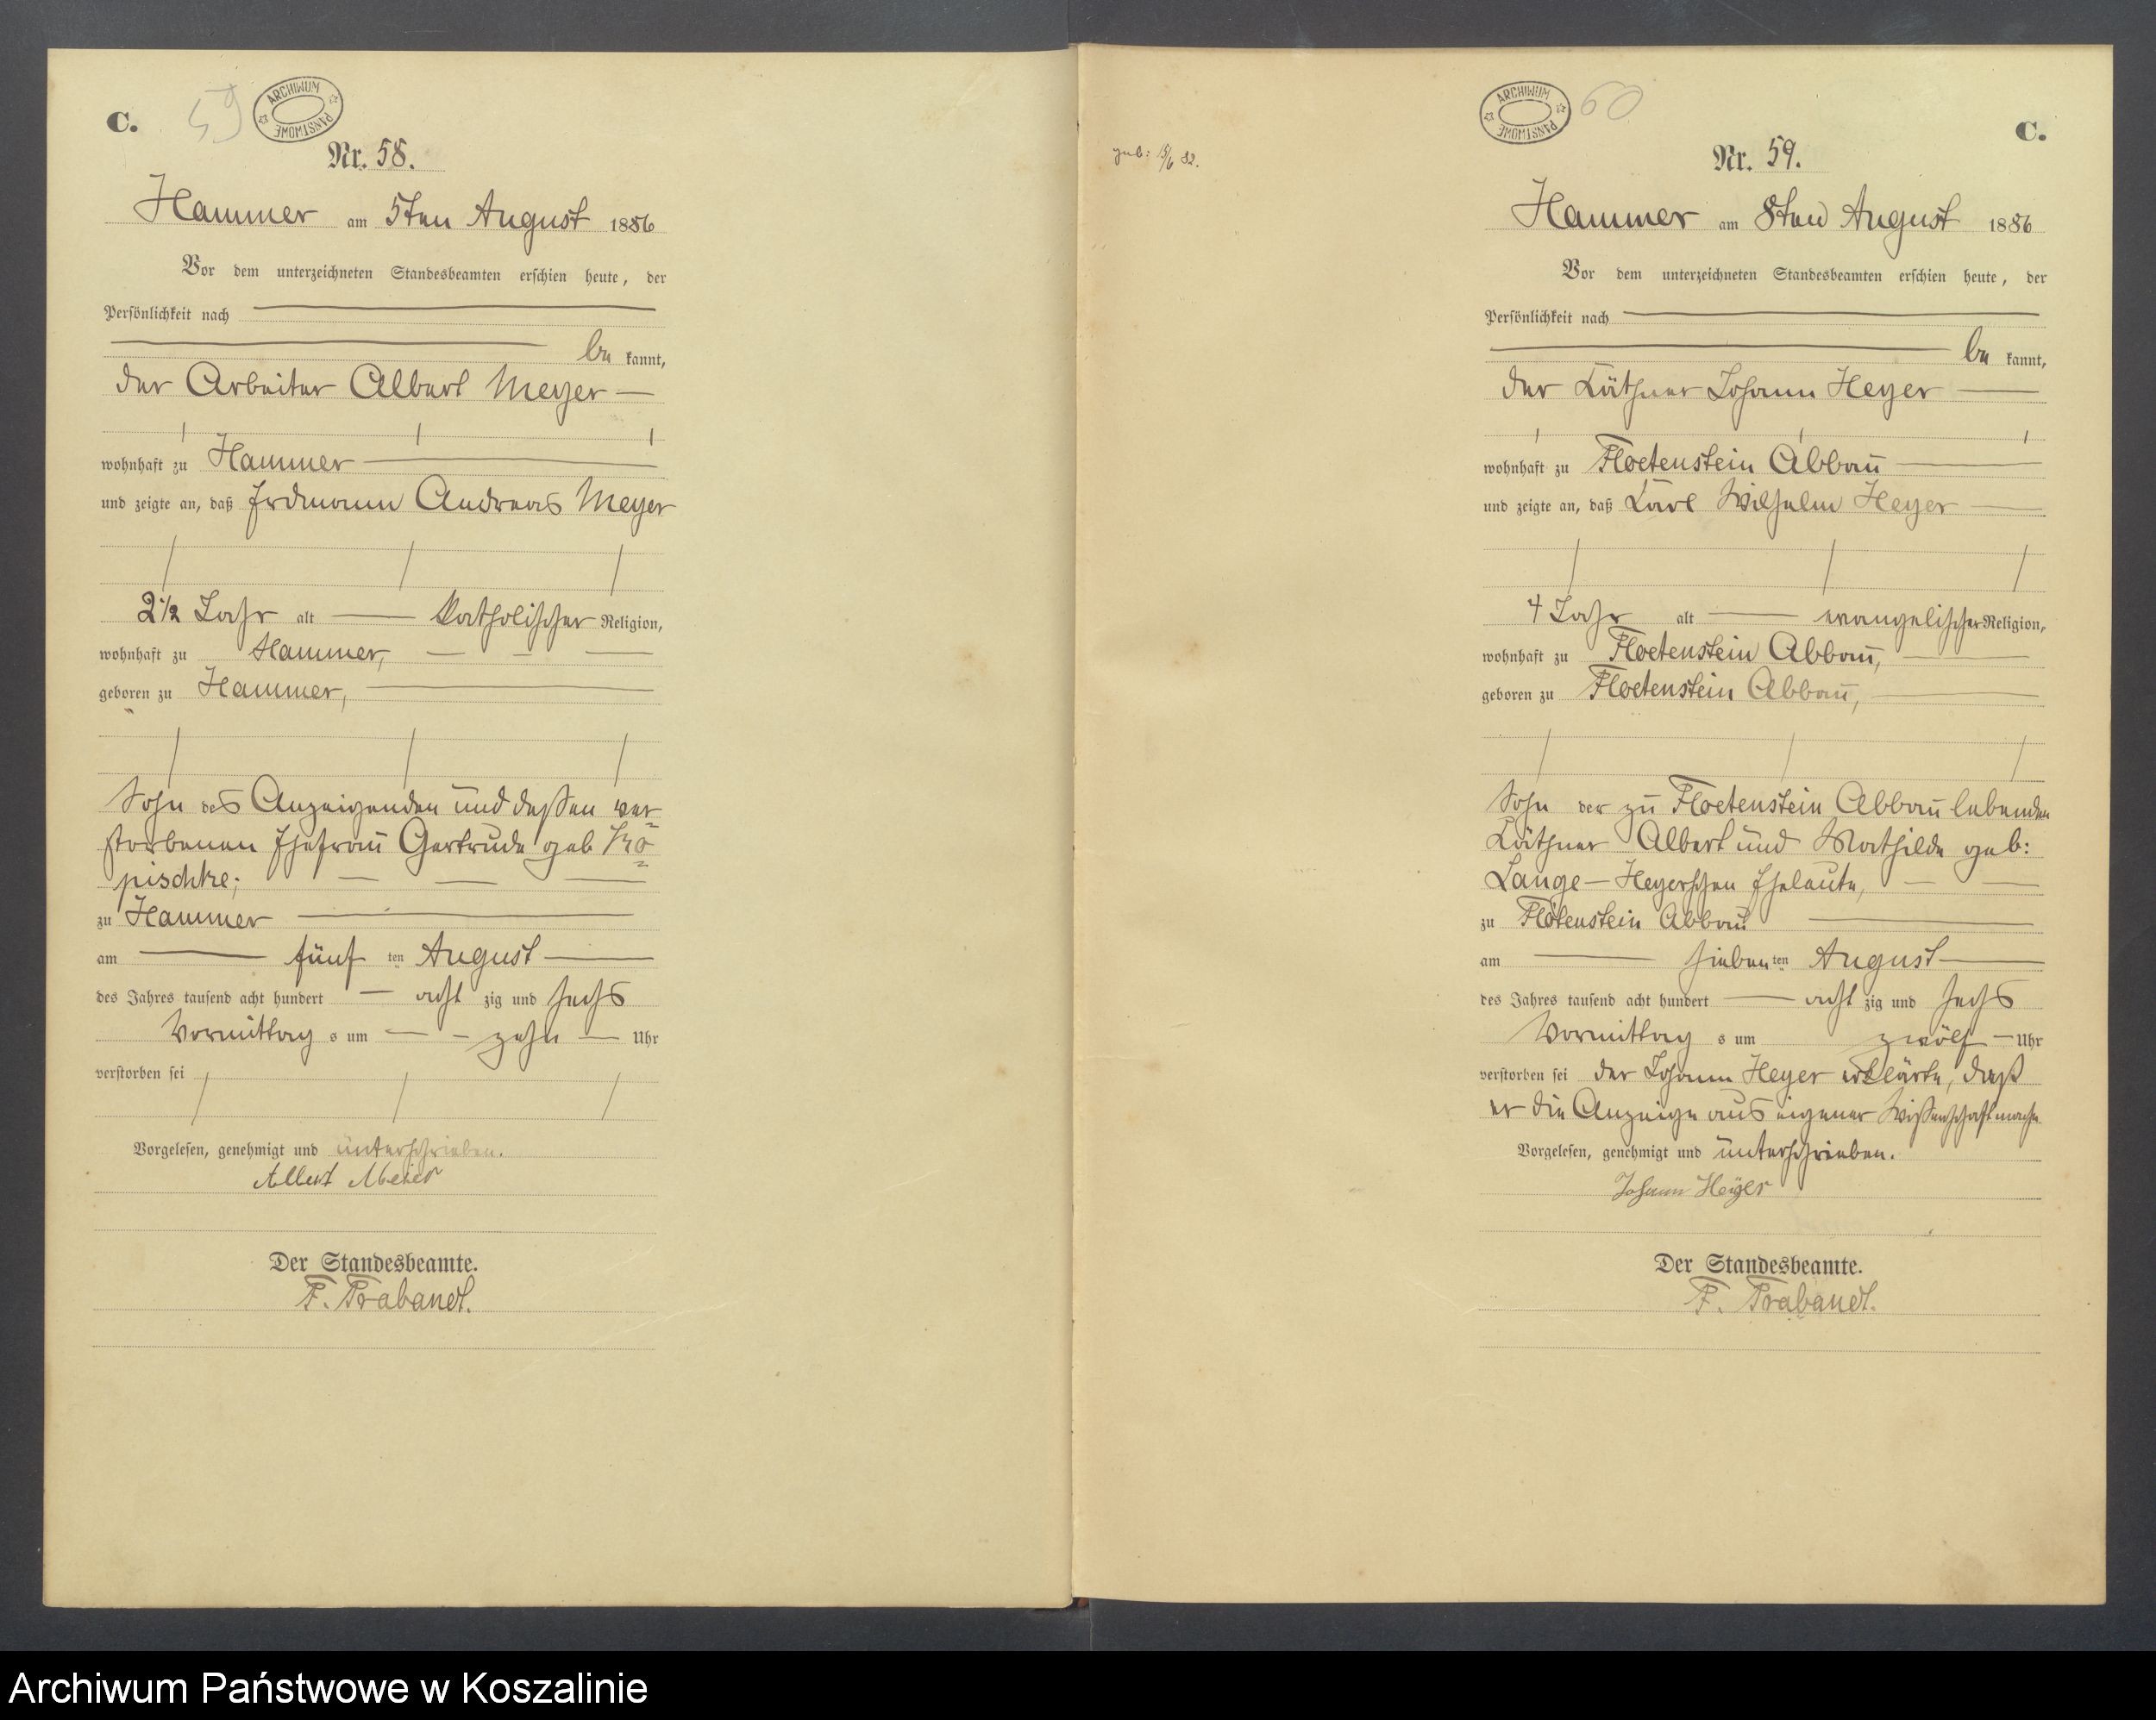 C.
59
ARCHIWUM PAŃSTWOWE
Nr. 58.
Hammer am 5ten August 1886
Vor dem unterzeichneten Standesbeamten erschien heute, der
Persönlichkeit nach
be kannt,
der Arbeiter Albert Meyer
wohnhaft zu Hammer
und zeigte an, daß Erdmann Andreas Meyer
2 1/2 Jahr alt katholischer Religion,
wohnhaft zu Hammer,
geboren zu Hammer,
Sohn des Anzeigenden und deßen ver=
storbenen Ehefrau Gertrude geb
pischke;
zu Hammer
am fünf ten August
des Jahres tausend acht hundert acht zig und sechs
Vormittag s um zehn Uhr
verstorben sei
Vorgelesen, genehmigt und unterschrieben.
Albert Meier
Der Standesbeamte.
F. Trabandt.
geb: 15/6 82.
ARCHIWUM PAŃSTWOWE
60
C.
Nr. 59.
Hammer am 8ten August 1886
Vor dem unterzeichneten Standesbeamten erschien heute, der
Persönlichkeit nach
be kannt,
der Käthner Johann Heyer
wohnhaft zu Floetenstein Abbau
und zeigte an, daß Karl Wilhelm Heyer
4 Jahr alt evangelischer Religion,
wohnhaft zu Floetenstein Abbau,
geboren zu Floetenstein Abbau,
Sohn der zu Floetenstein Abbau lebenden
Käthner Albert und Mathilde geb:
Lange-Heyerschen Eheleute,
zu Flötenstein Abbau
am sieben ten August
des Jahres tausend acht hundert acht zig und sechs
Vormittag s um zwölf Uhr
verstorben sei der Johann Heyer erklärte, daß
er die Anzeige aus eigener Wißenschaft mache
Vorgelesen, genehmigt und unterschrieben.
Johann Heÿer
Der Standesbeamte.
F. Trabandt.
Archiwum Państwowe w Koszalinie